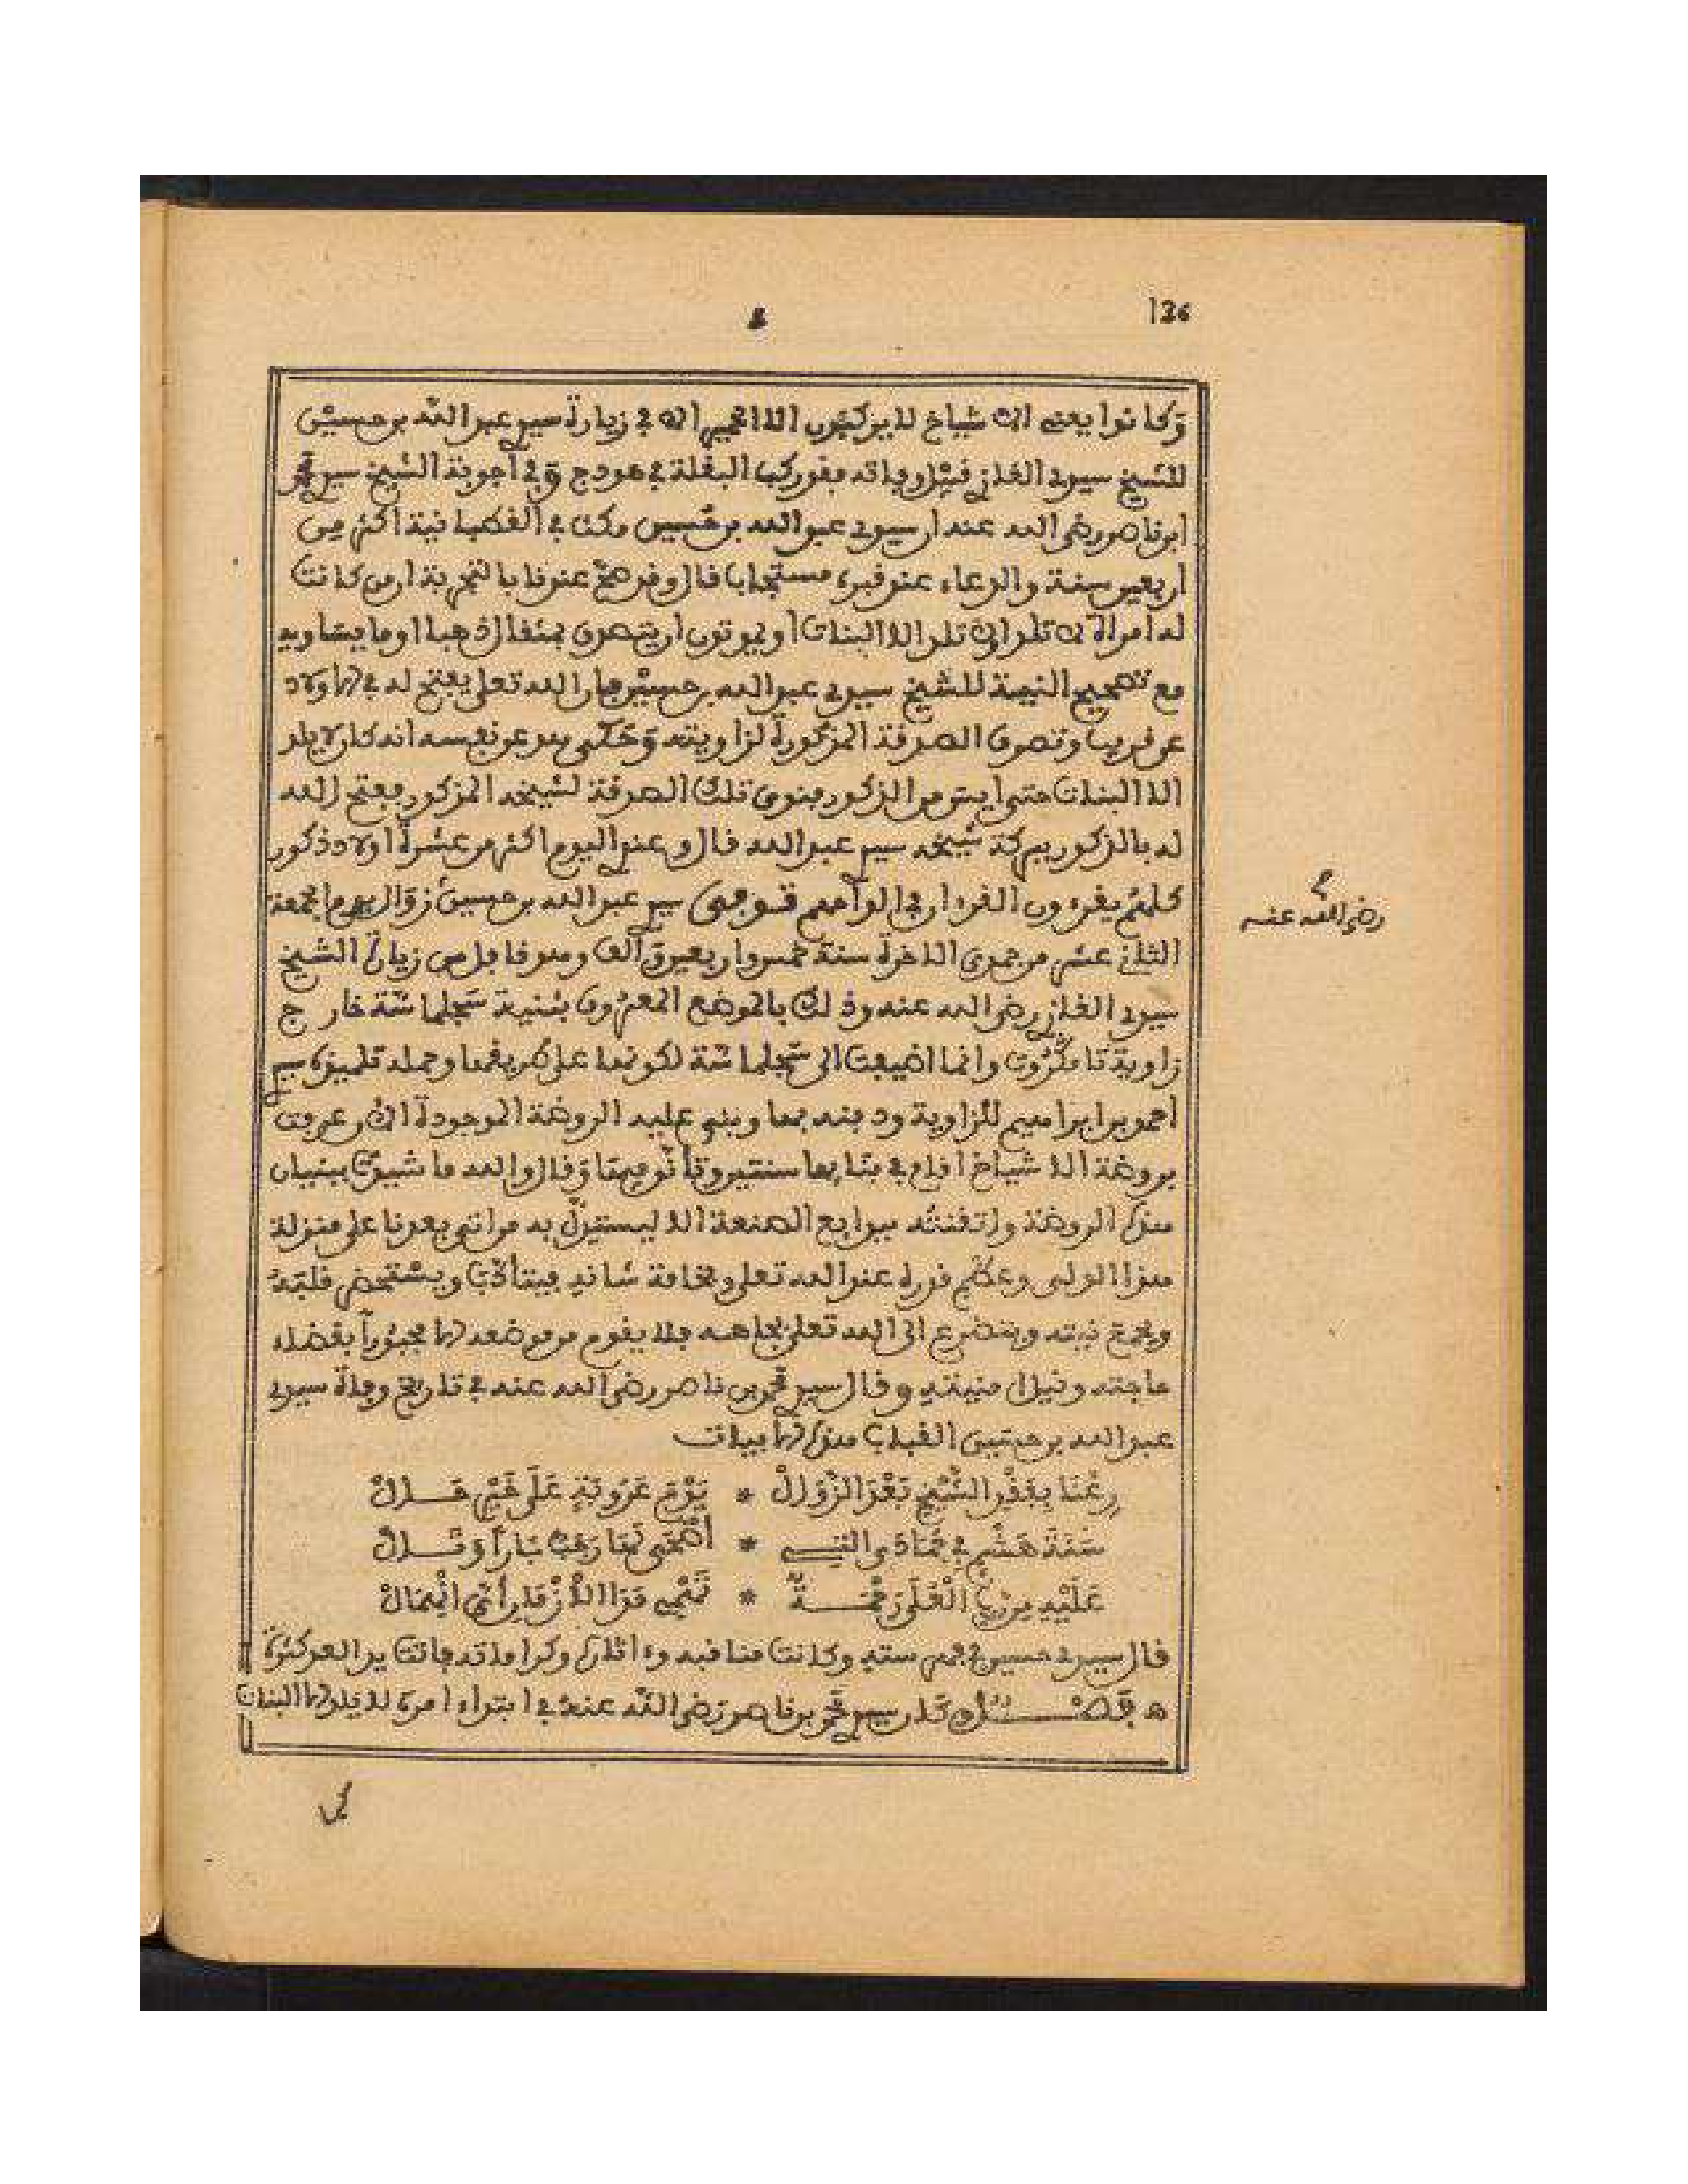 126
وكانوا يعني الاشياخ لا يركبون الا الحمير الا في زيارة سيدي عبد الله بن حسين
للشيخ سيدي الغازي قبل وفاته فقد ركب البغلة في هودج وفي أجوبة الشيخ سيدي محمد
ابن ناصر رضي الله عنه ان سيدي عبد الله بن حسين مكث في القطبانية اكثر من
اربعين سنة والدعاء عند قبره مستجاب قال وقد صح عندنا بالتجربة ان من كانت
له امرأة لا تلد او لا تلد الا البنات أو يموتون ان يتصدق بمثقال ذهبا او ما يساويه
مع تصحيح النية للشيخ سيدي عبد الله بن حسين فإن الله تعلى يفتح له في الاولاد
عن قريب وتصرف الصدقة المذكورة لزاويته وحكى هو عن نفسه انه كان لا يلد
الا البنات حتى أيس من الذكور فنوى تلك الصدقة لشيخه المذكور ففتح الله
له بالذكور ببركة شيخه سيدي عبد الله قال وعندي اليوم اكثر من عشرة اولاد ذكور
كلهم يقرءون القرءان في ألواحهم توفي سيدي عبد الله بن حسين زوال يوم الجمعة
رضي الله عنه
الثاني عشر من جمدى الاخرة سنة خمس واربعين وألف وهو قافل من زيارة الشيخ
سيدي الغازي رضي الله عنه وذلك بالموضع المعروف بثنية سجلماسة خارج
زاوية تامكروت وانما اضيفت الى سجلماسة لكونها على طريقها وحمله تلميذه سيدي
احمد بن ابراهيم للزاوية ودفنه بها وبنى عليه الروضة الموجودة الان عرفت
بروضة الاشياخ اقام في بنايها سنتين وقال والله ما شيدت بنيان
هذه الروضة واتقنته ببدايع الصنعة الا ليستدل به من اتى بعدنا على منزلة
هذا الولي وعظم قدره عند الله تعلى وفخامة شانه فيتأدب ويستحضر قلبه
ويجمع نيته ويتضرع الى الله تعلى بجاهه فلا يقوم من موضعه الا مجبوراً بقضاء
حاجته ونيل منيته وقال سيدي محمد بن ناصر رضي الله عنه في تاريخ وفاة سيدي
عبد الله بن حسين القباب هذه الابيات
رعنا بفقد الشيخ بعد الزوال * يوم عروبة على غير قال
سنة هشم في جمادى التي *
عليه من رب العلى رحمة * تهمي مدا الازمان أي انهمال
قال سيدي حسين في فهرسته وكانت مناقبه وءاثاره وكراماته فاتت يد العد كثرة
ه فصل كان سيدي محمد بن ناصر رضي الله عنه في ابتداء امره لا يلد الا البنات